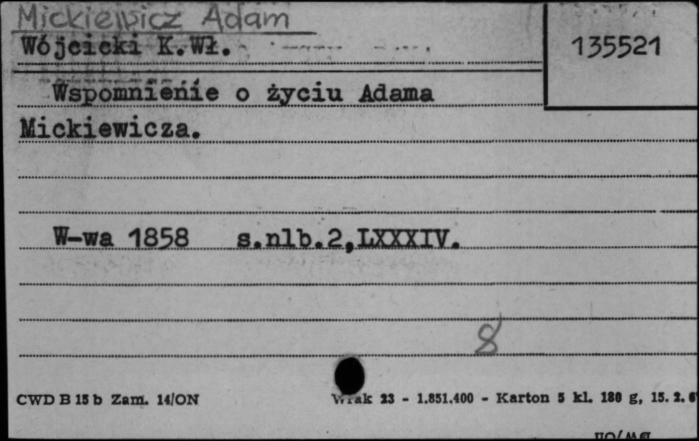 Mickiewicz Adam
Wójcicki K.Wł.
135521
Wspomnienie o życiu Adama
Mickiewicza.
W-wa 1858 s.nlb.2,LXXXIV.
8
CWD B 15 b Zam. 14/ON
23 - 1.851.400 - Karton 5 kl. 180 g, 15. 2.